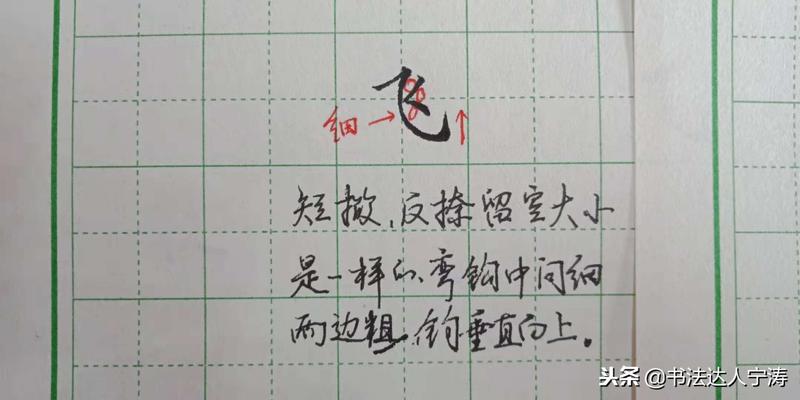 飞
细
短撇,反捺留空大小
是一样的,弯钩中间细
两边粗,钩垂直向上。
头条 @书法达人宁涛